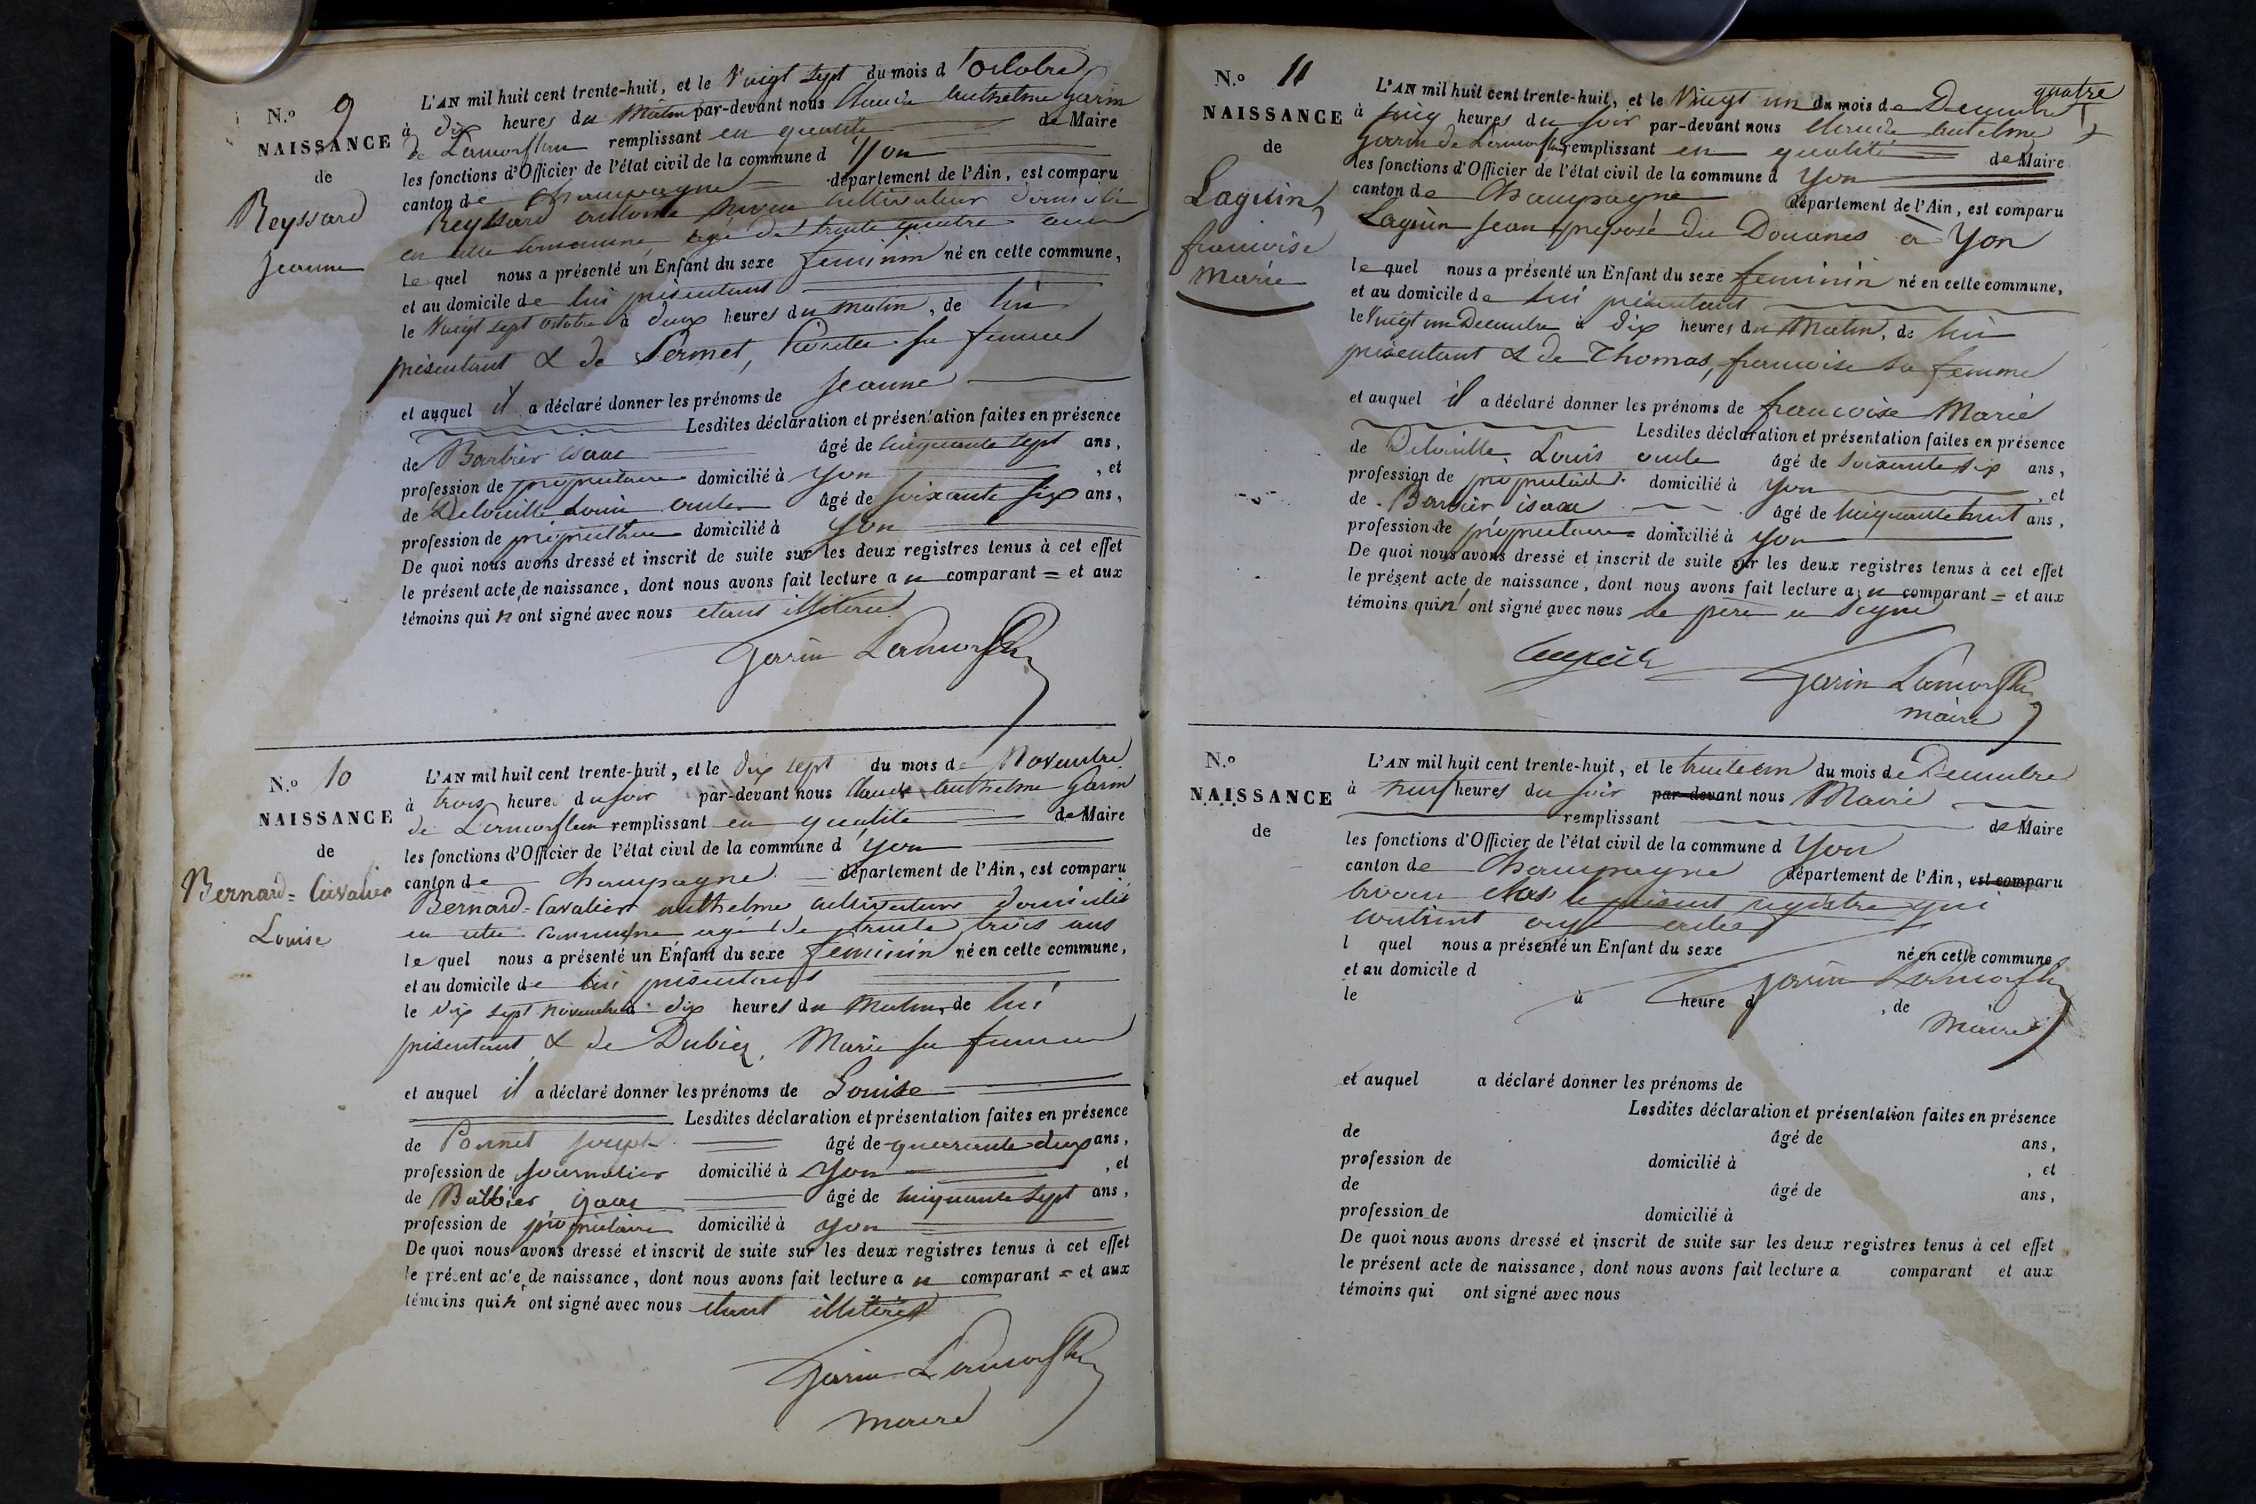 N.o 9
NAISSANCE
de
Reyssard
Jeanne
L'AN mil huit cent trente-huit, et le Vingt sept du mois d'octobre
à dix heures du Matin par-devant nous Claude Anthelme Garin
de Lamorflan remplissant en qualité de Maire
les fonctions d'Officier de l'état civil de la commune d'Yon
canton de Champagne département de l'Ain, est comparu
Reyssard antoine cultivateur domicilié
en cette Commune, agé de trente quatre ans
lequel nous a présenté un Enfant du sexe feminin né en cette commune,
et au domicile de lui présentant
le Vingt sept octobre à deux heures du matin, de lui
présentant & de Sermet, sa femme
et auquel il a déclaré donner les prénoms de Jeanne
Lesdites déclaration et présentation faites en présence
de Barbier isaac âgé de cinquante sept ans,
profession de propriétaire domicilié à Yon, et
de Delouille Louis âgé de soixante six ans,
profession de propriétaire domicilié à Yon
De quoi nous avons dressé et inscrit de suite sur les deux registres tenus à cet effet
le présent acte de naissance, dont nous avons fait lecture au comparant = et aux
témoins qui n'ont signé avec nous etant illiterés
Garin Lamorflan
N.o 10
NAISSANCE
de
Bernard = Cavalier
Louise
L'AN mil huit cent trente-huit, et le dix sept du mois de Novembre
à trois heures du soir par-devant nous Claude Anthelme Garin
de Lamorflan remplissant en qualité de Maire
les fonctions d'Officier de l'état civil de la commune d'Yon
canton de Champagne département de l'Ain, est comparu
Bernard = Cavalier anthelme cultivateur domicilié
en cette commune agé de trente trois ans
lequel nous a présenté un Enfant du sexe feminin né en cette commune,
et au domicile de lui présentant
le dix sept novembre à dix heures du Matin, de lui
présentant & de Dubiez, Marie sa femme
et auquel il a déclaré donner les prénoms de Louise
Lesdites déclaration et présentation faites en présence
de Ponnet joseph âgé de quarante deux ans,
profession de journalier domicilié à Yon, et
de Barbier, isaac âgé de cinquante sept ans,
profession de propriétaire domicilié à Yon
De quoi nous avons dressé et inscrit de suite sur les deux registres tenus à cet effet
le présent acte de naissance, dont nous avons fait lecture au comparant = et aux
témoins qui n'ont signé avec nous etant illiterés
Garin Lamorflan
maire
N.o 11
NAISSANCE
de
Laguin,
francoise
Marie
quatre
L'AN mil huit cent trente-huit, et le Vingt un du mois de Decembre
à cinq heures du soir par-devant nous Claude Antelme
Garin de Lamorflan remplissant en qualité de Maire
les fonctions d'Officier de l'état civil de la commune d Yon
canton de Champagne département de l'Ain, est comparu
Laguin Jean préposé du Douanes à Yon
lequel nous a présenté un Enfant du sexe feminin né en cette commune,
et au domicile de lui présentant
le Vingt un Decembre à dix heures du Matin, de lui
présentant & de Thomas, francoise sa femme
et auquel il a déclaré donner les prénoms de francoise Marie
Lesdites déclaration et présentation faites en présence
de Delouille, Louis âgé de soixante six ans,
profession de propriétaire domicilié à Yon, et
de Barbier isaac âgé de cinquante huit ans,
profession de propriétaire domicilié à Yon
De quoi nous avons dressé et inscrit de suite sur les deux registres tenus à cet effet
le présent acte de naissance, dont nous avons fait lecture au comparant = et aux
témoins qui n'ont signé avec nous le père a signé
Garin Lamorflan
maire
N.o
NAISSANCE
de
L'AN mil huit cent trente-huit, et le trente un du mois de Decembre
à neuf heures du soir par-devant nous Maire
remplissant de Maire
les fonctions d'Officier de l'état civil de la commune d Yon
canton de Champagne département de l'Ain, est comparu
avons clos le présent registre qui
contient onze actes
l quel nous a présenté un Enfant du sexe né en cette commune,
et au domicile d
Garin Lamorflan
le à heure d , de
Maire
et auquel a déclaré donner les prénoms de
Lesdites déclaration et présentation faites en présence
de âgé de ans,
profession de domicilié à , et
de âgé de ans,
profession de domicilié à
De quoi nous avons dressé et inscrit de suite sur les deux registres tenus à cet effet
le présent acte de naissance, dont nous avons fait lecture a comparant et aux
témoins qui ont signé avec nous